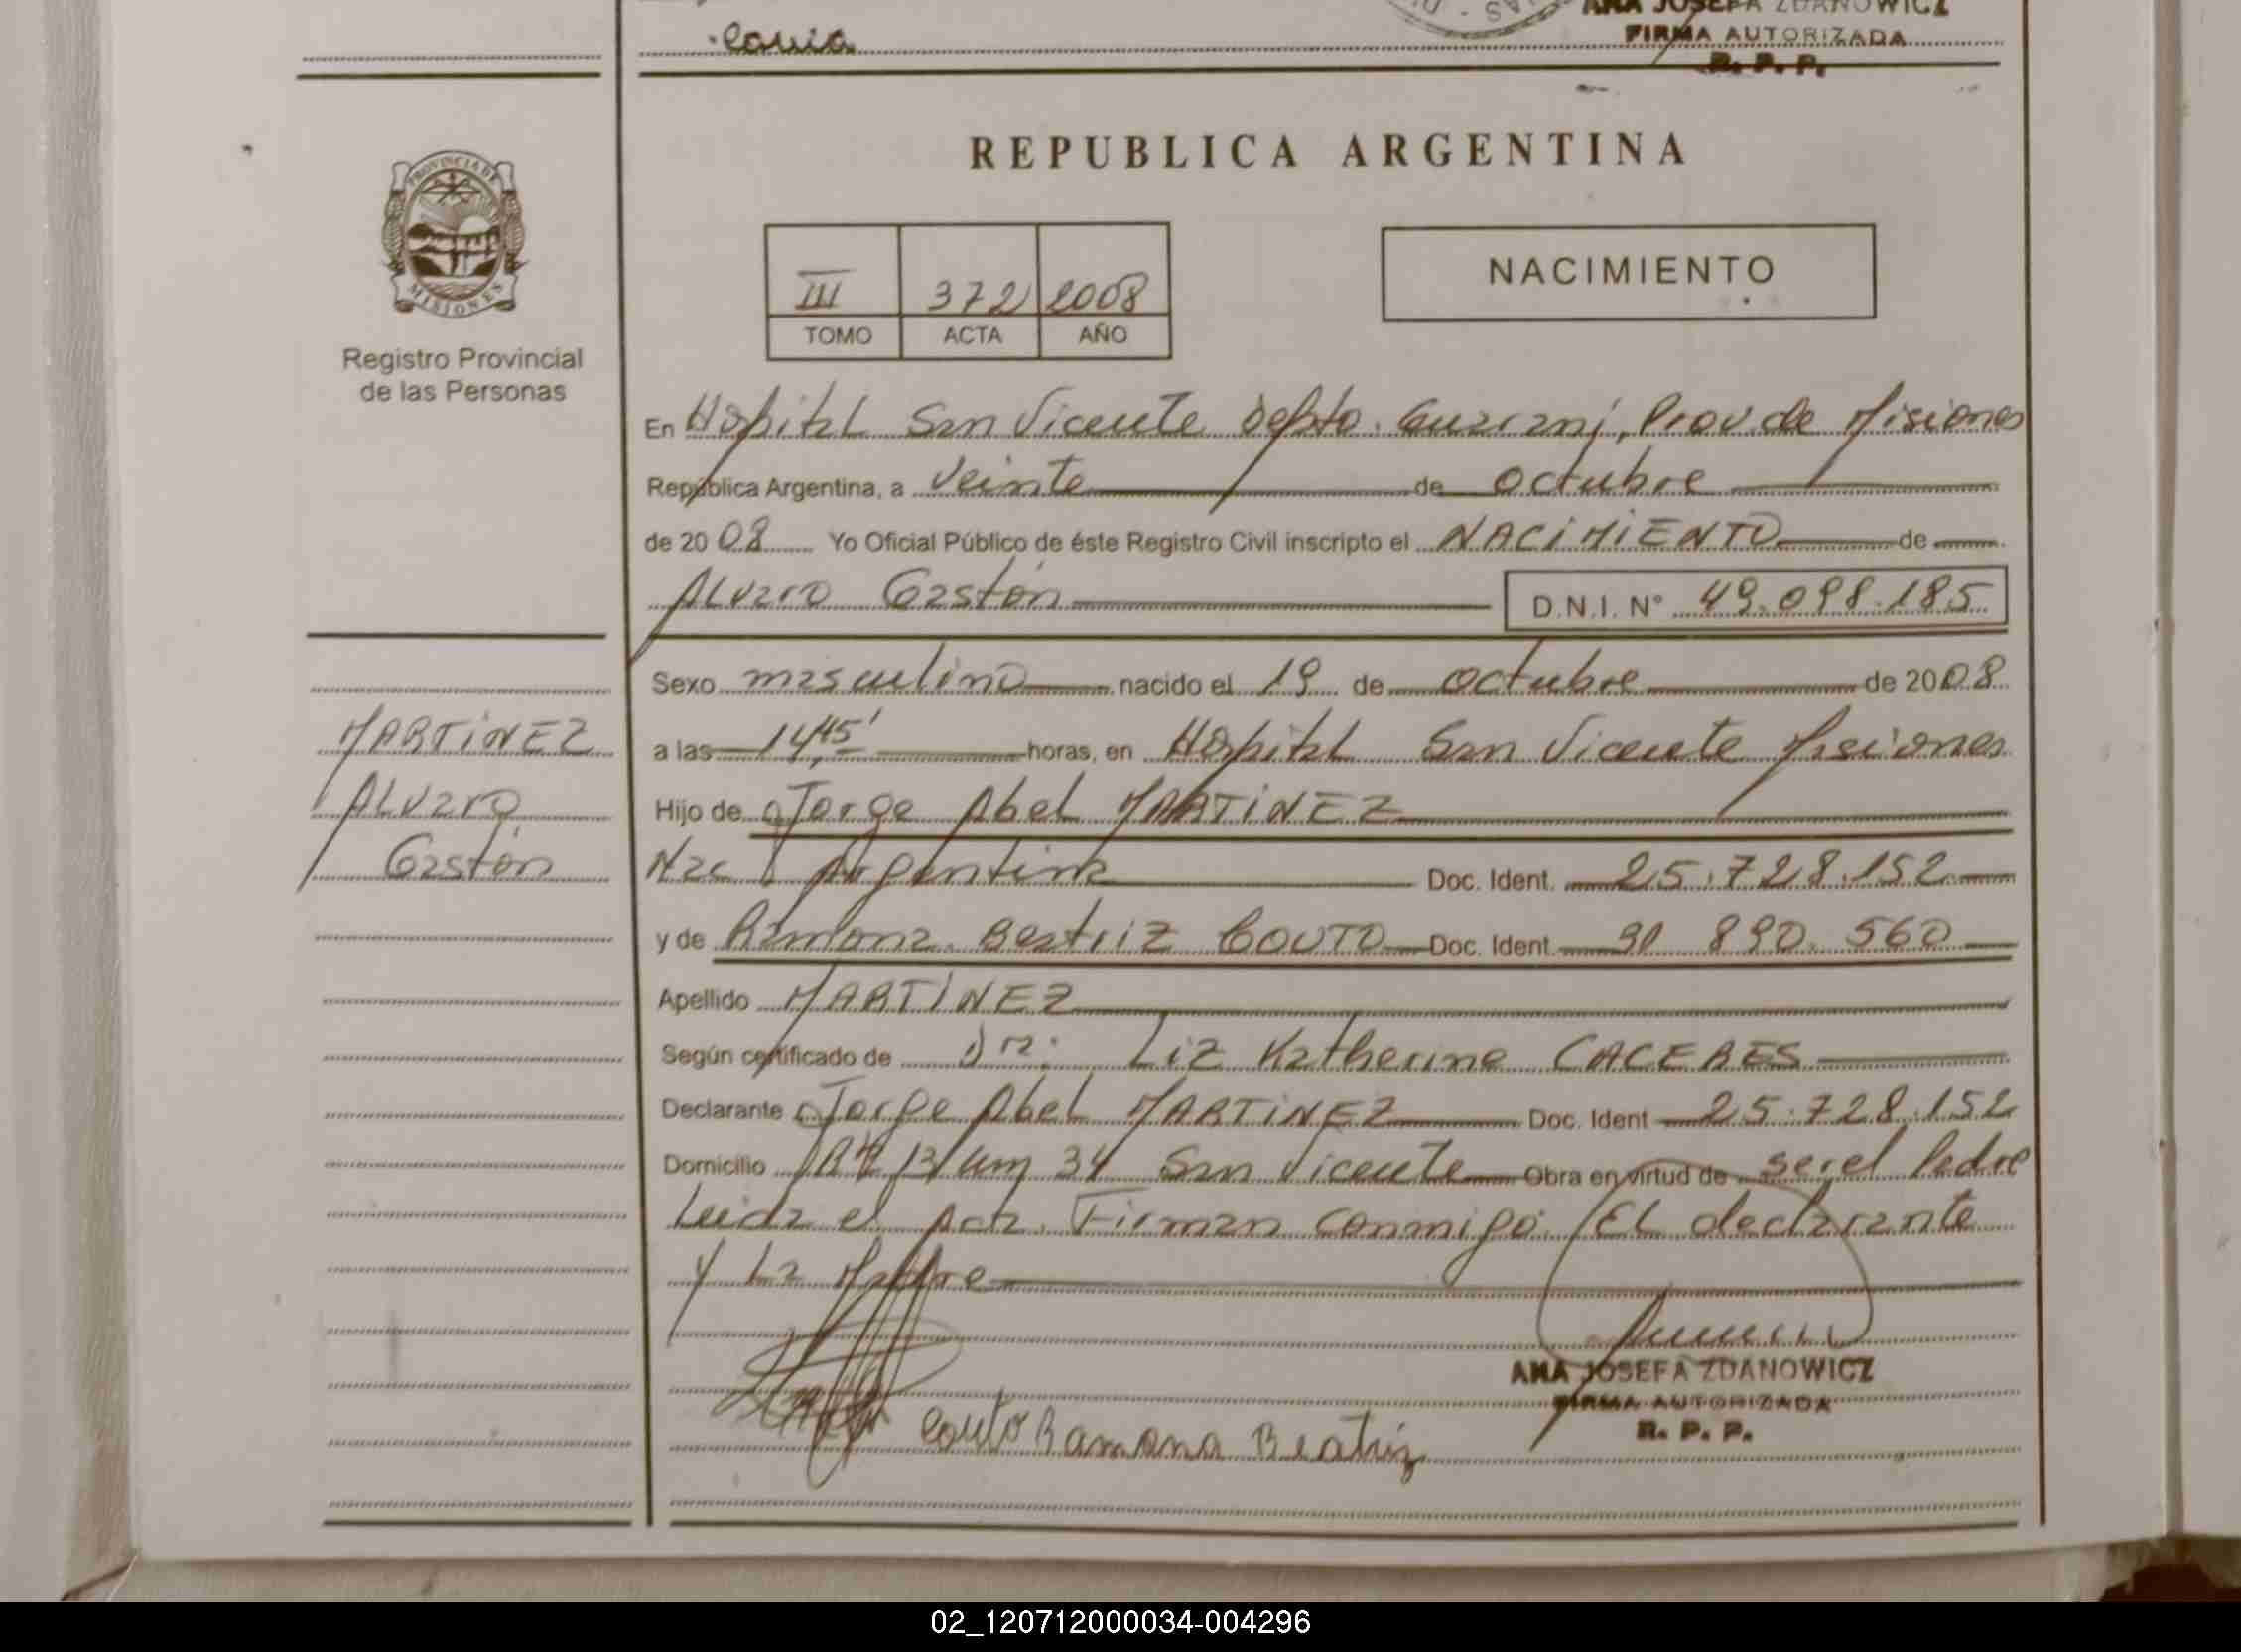 Couia
ANA JOSEFA ZDANOWICZ
FIRMA AUTORIZADA
R. P. P.
PROVINCIA DE
MISIONES
Registro Provincial
de las Personas
REPUBLICA ARGENTINA
III 372 2008
TOMO ACTA AÑO
NACIMIENTO
En Hospital San Vicente Depto. Guarani, Prov. de Misiones
República Argentina, a veinte de octubre
de 2008 Yo Oficial Público de éste Registro Civil inscripto el NACIMIENTO de
Alvaro Gastón
D.N.I. N° 49.098.185
Sexo masculino nacido el 19 de octubre de 2008
MARTINEZ
Alvaro
Gastón
a las 14,45' horas, en Hospital San Vicente Misiones
Hijo de Jorge Abel MARTINEZ
Nac Argentina Doc. Ident. 25.728.152
y de Ramona Beatriz COUTO Doc. Ident. 890.560
Apellido MARTINEZ
Según certificado de Dra. Liz Katherine CACERES
Declarante Jorge Abel MARTINEZ Doc. Ident 25.728.152
Domicilio 13 km 34 San Vicente Obra en virtud de ser el Padre
Leida el Acta. Firman conmigo El declarante
y La Madre
ANA JOSEFA ZDANOWICZ
FIRMA AUTORIZADA
R. P. P.
Couto Ramona Beatriz
02_120712000034-004296